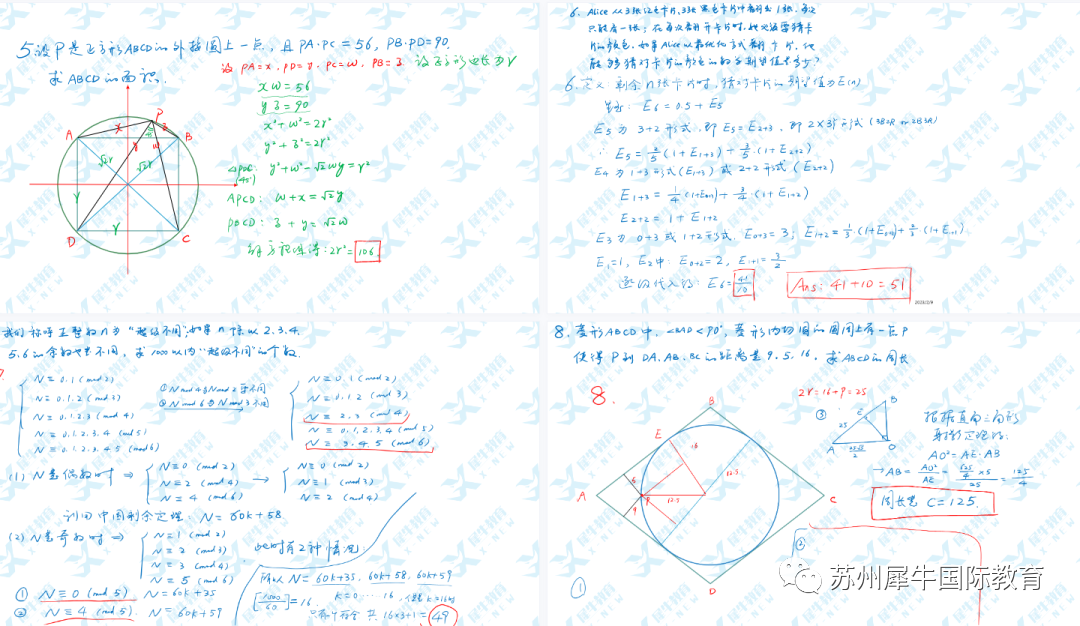 5.设P是正方形ABCD的外接圆上一点,且PA·PC=56, PB·PD=90.
求ABCD的面积.
设PA=x, PD=y, PC=w, PB=z 设正方形边长为r
xw=56
yz=90
x²+w²=2r²
y²+z²=2r²
y²+w²-√2wy=r²
(45°)
w+x=√2y
PBCD: z+y=√2w
解方程组得:2r²=106
A
P
B
D
C
x
z
y
w
√2r
√2r
r
r
6. Alice从3张红色卡片,3张黑色卡片中
6.定义:剩余n张卡片时,猜对卡片的期望值为E(n)
E₆=0.5+E₅
E₅为3+2形式,即E₅=E₂₊₃,
∴ E₅=3/5(1+E₁₊₃)+2/5·(1+E₂₊₂)
E₄为1+3形式(E₁₊₃)或2+2形式(E₂₊₂)
E₁₊₃=1/4·(1+E₀₊₃)+3/4·(1+E₁₊₂)
E₂₊₂=1+E₁₊₂
E₃为0+3或1+2形式. E₀₊₃=3; E₁₊₂=1/3(1+E₀₊₂)+2/3·(1+E₁₊₁)
E₁=1, E₂中: E₀₊₂=2, E₁₊₁=3/2
逐级代入得: E₆=41/10
Ans: 41+10=51
我们称呼正整数n为"超级不同",如果n除以2.3.4.
5.6的余数也不同,求1000以内"超级不同"的个数.
N≡0.1(mod 2)
N≡0.1.2(mod 3)
N≡0.1.2.3(mod 4)
N≡0.1.2.3.4(mod 5)
N≡0.1.2.3.4.5(mod 6)
①N mod 4与N mod 2要不同
②N mod 6与N mod 3不同
N≡0.1(mod 2)
N≡0.1.2(mod 3)
N≡2.3(mod 4)
N≡0.1.2.3.4(mod 5)
N≡3.4.5(mod 6)
(1) N是偶数时 ⇒
N≡0(mod 2)
N≡2(mod 4)
N≡4(mod 6)
→
N≡0(mod 2)
N≡1(mod 3)
N≡2(mod 4)
利用中国剩余定理: N=60k+58.
(2) N是奇数时 ⇒
N≡1(mod 2)
N≡2(mod 3)
N≡3(mod 4)
N≡5(mod 6)
此时有2种情况
① N≡0(mod 5) N=60k+35
② N≡4(mod 5). N=60k+59
所以N=60k+35, 60k+58, 60k+59
[1000/60]=16. k=0···16,
共16×3+1=49
8.菱形ABCD中,∠BAD<90°,菱形内切圆的圆周上有一点P
使得P到DA.AB.BC的距离是9.5.16.求ABCD的周长
8.
2r=16+9=25
③
B
E
A
O
25
根据直角三角形
射影定理得.
AO²=AE·AB
→AB=AO²/AE
=125/4
周长是 C=125.
B
E
A
C
D
P
16
12.5
12.5
9
①
②
苏州犀牛国际教育